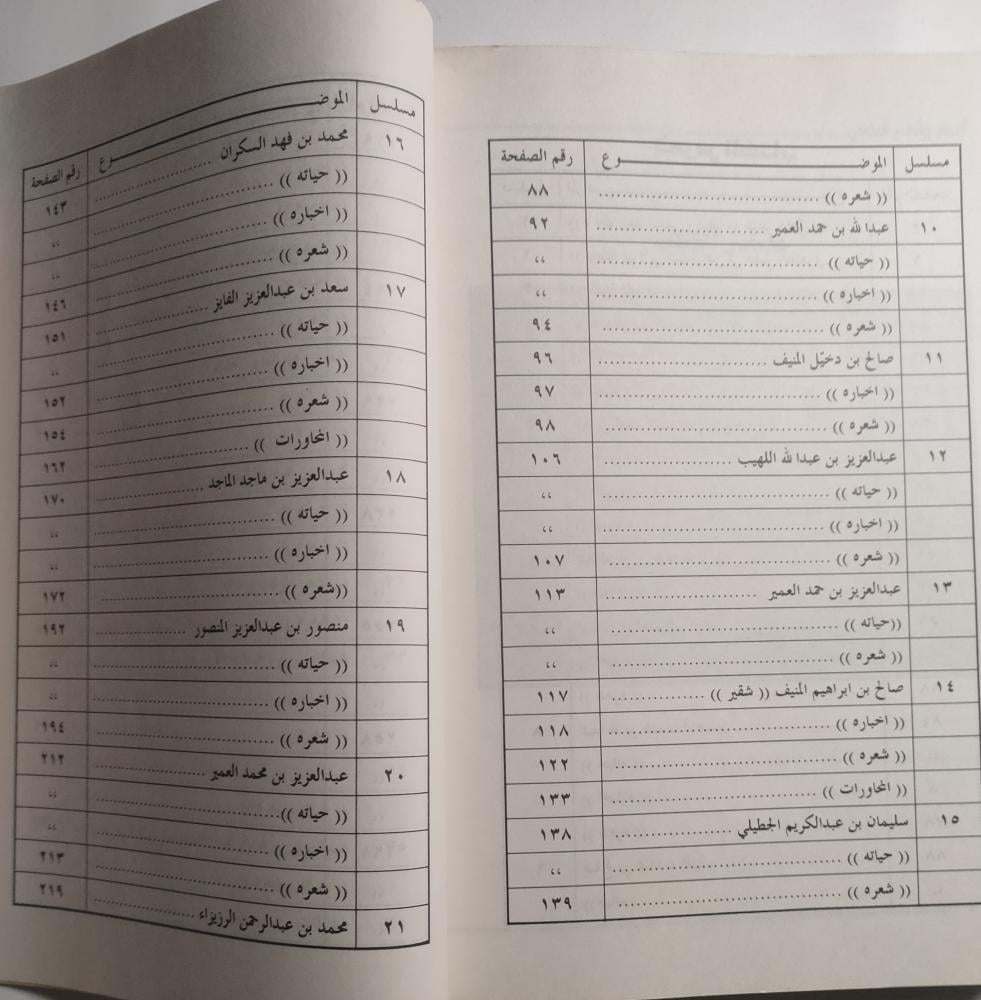 مسلسل الموضـــــوع رقم الصفحة
(( شعره )) ........................ ٨٨
١٠ عبدالله بن حمد العمير ........................ ٩٢
(( حياته )) ........................ ،،
(( اخباره )) ........................ ،،
(( شعره )) ........................ ٩٤
١١ صالح بن دخيّل المنيف ........................ ٩٦
(( اخباره )) ........................ ٩٧
(( شعره )) ........................ ٩٨
١٢ عبدالعزيز بن عبدالله اللهيب ........................ ١٠٦
(( حياته )) ........................ ،،
(( اخباره )) ........................ ،،
(( شعره )) ........................ ١٠٧
١٣ عبدالعزيز بن حمد العمير ........................ ١١٣
((حياته )) ........................ ،،
(( شعره )) ........................ ،،
١٤ صالح بن ابراهيم المنيف (( شقير )) ................ ١١٧
(( اخباره )) ........................ ١١٨
(( شعره )) ........................ ١٢٢
(( المحاورات )) ........................ ١٣٣
١٥ سليمان بن عبدالكريم الجطيلي ................ ١٣٨
(( حياته )) ........................ ،،
(( شعره )) ........................ ١٣٩
مسلسل الموضـــــوع رقم الصفحة
١٦ محمد بن فهد السكران ........................ ١٤٣
(( حياته )) ........................ ،،
(( اخباره )) ........................ ،،
(( شعره )) ........................ ١٤٦
١٧ سعد بن عبدالعزيز الفايز ................ ١٥١
(( حياته )) ........................ ،،
(( اخباره )) ........................ ١٥٢
(( شعره )) ........................ ١٥٤
(( المحاورات )) ........................ ١٦٢
١٨ عبدالعزيز بن ماجد الماجد ................ ١٧٠
(( حياته )) ........................ ،،
(( اخباره )) ........................ ،،
((شعره )) ........................ ١٧٢
١٩ منصور بن عبدالعزيز المنصور ................ ١٩٢
(( حياته )) ........................ ،،
(( اخباره )) ........................ ،،
(( شعره )) ........................ ١٩٤
٢٠ عبدالعزيز بن محمد العمير ................ ٢١٢
(( حياته )) ........................ ،،
(( اخباره )) ........................ ،،
(( شعره )) ........................ ٢١٣
٢١ محمد بن عبدالرحمن الرزيزاء ................ ٢١٩